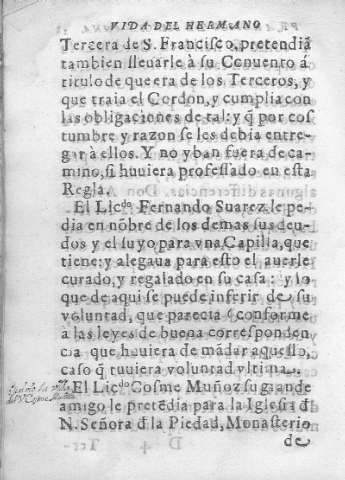 VIDA DEL HERMANO
Tercera de S. Francisco, pretendiã
tambien lleuarle à su Conuento á
titulo de que era de los Terceros, y
que traia el Cordon, y cumplia con
las obligaciones de tal: y q̃ por cos
tumbre y razon se les debia entre-
gar à ellos. Y no yban fuera de ca-
mino, si huuiera professado en esta
Regla.
El Licdo. Fernando Suarez le pe-
dia en nõbre de los demas sus deu-
dos y el suyo para vna Capilla, que
tiene: y alegaua para esto el auerle
curado, y regalado en su casa: y lo
que de aqui se puede inferir de su
voluntad, que parecia conforme
à las leyes de buena corresponden
cia que huuiera de mãdar aquello,
caso q̃ tuuiera voluntad vltima.
El Licdo. Cosme Muñoz su grande
amigo le pretẽdia para la Iglesia d̃
N. Señora d̃ la Piedad, Monasterio
D 4
de